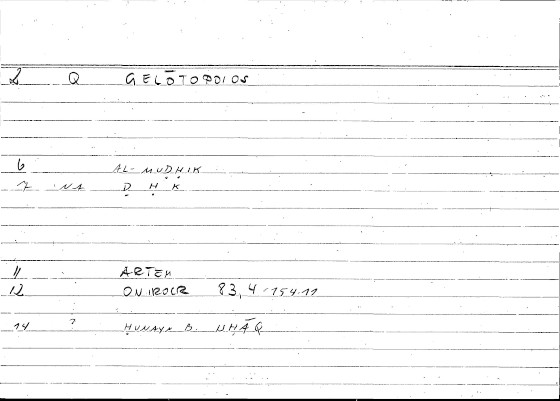 2 Q GELŌTOPOIOS
6 AL-MUḌḤIK
7 NA Ḍ Ḥ K
11 ARTEM
12 ONIROCR 83,4 - 154.11
14 ? ḤUNAYN B. ISḤĀQ